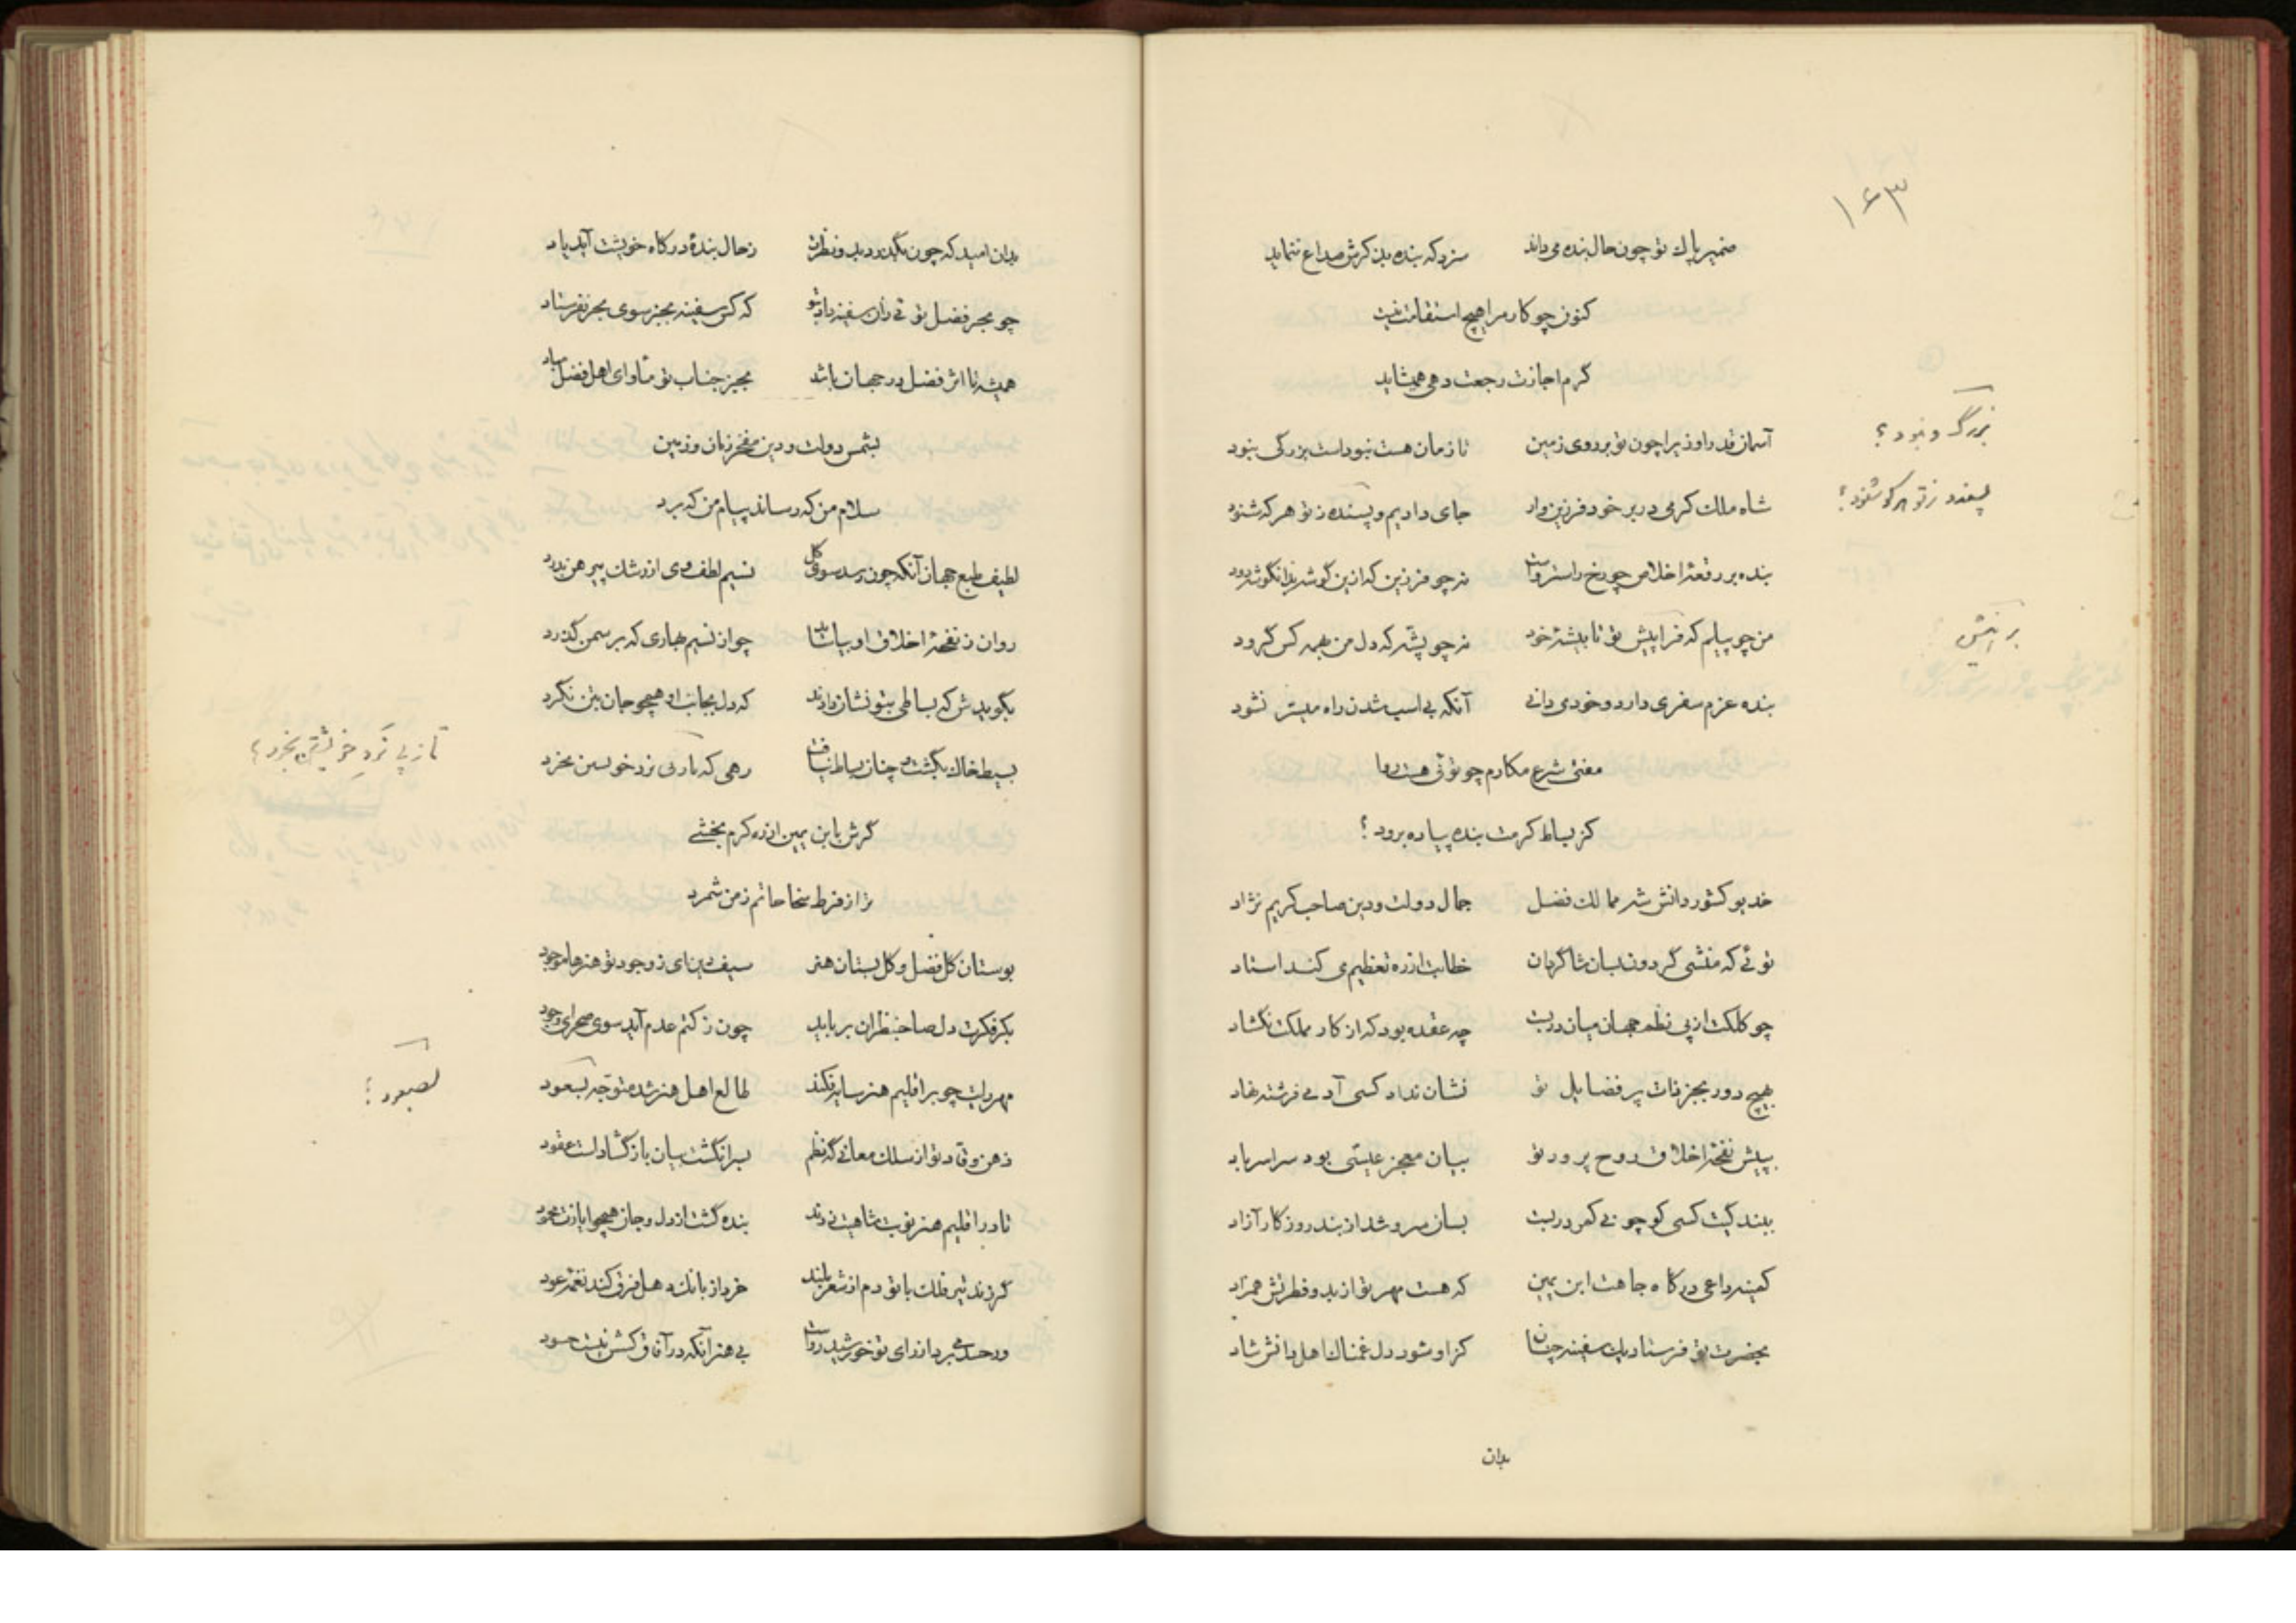 ۱۶۳
ضمیر پاک تو چون حال بنده می‌داند سزد که بنده بدین کرش صداع ننماید
کنون چو کار مرا هیچ استقامت نیست
گرم اجازت رجعت دهی همیشاید
آسمان قدرا وزیرا چون تو بر روی زمین تا زمان هست نبوداست بزرگی بنبود
بزرگ و نبود؟
شاه ملک کرمی در بر خود فرزین وار جای دادیم و پسنده ز تو هر که شنود
پسندد ز تو هر کو شنود؟
بنده بر رقعهٔ اخلاص چو رخ راست رواست نه چو فرزین که ازین گوشه بدانگوشه رود
من چو پیلم که فرا پیش تو تا بیشهٔ خود نه چو پشه که دل من بهمه کس گرود
بنده عزم سفری دارد و خود می‌دانی آنکه بی اسب شدن راه میسر نشود
مفتی شرع مکارم چو توئی هست روا
کز بساط کرمت بنده پیاده برود؟
خدیو کشور دانش شه ممالک فضل جمال دولت و دین صاحب کریم نژاد
توئی که منشی گردون بسان شاگردان خطابت از ره تعظیم می کند استاد
چو کلکت از پی نظم جهان میان دربست چه عقده بود که از کار مملکت نگشاد
بهیچ دور بجز ذات پر فضایل تو نشان نداد کسی آدمی فرشته نهاد
بپیش نفحهٔ اخلاق روح پرور تو بیان معجز عیسی بود سراسر باد
ببندگیت کسی کو چو نی کمر دربست بسان سرو شد از بند روزگار آزاد
کمینه داعی درگاه جاهت ابن یمین که هست مهر تو از بدو فطرتش همزاد
بحضرت تو فرستاد یک سفینه چنان کز او شود دل غمناک اهل دانش شاد
بدان
بدان امید که چون بگذرد بدو نظرت ز حال بندهٔ درگاه خویشت آید یاد
چو بحر فضل توئی زان سفینه داد بتو که کس سفینه بجز سوی بحر نفرستاد
همیشه تا اثر فضل در جهان باشد بجز جناب تو مأوای اهل فضل مباد
بشمس دولت و دین مفخر زمان و زمین
سلام من که رساند پیام من که برد
لطیف طبع جهان آنکه چون رسد سوی گل نسیم لطف وی از رشک پیرهن بدرد
روان ز نفحهٔ اخلاق او بیاساید چو از نسیم بهاری که بر سمن گذرد
بگویدش که بساطی بتو نشان دادند که دل بجانب او هیچو جان بتن نگرد
بسیط خاک بگشت و چنان بساط نیافت رهی که تا زپی نزد خویشتن بخرد
تا ز پی نرد خویشتن بخرد؟
گرش بابن یمین از ره کرم بخشی
ز از فرط سخا حاتم زمن شمرد
بوستان گل فضل و گل بستان هنر سیف دین ای ز وجود تو هنرها موجود
بکر فکرت دل صاحبنظران برباید چون ز کتم عدم آید سوی صحرای وجود
مهر رایت چو بر اقلیم هنر سایه فکند طالع اهل هنر شد متوجه بسعود
لصعود؟
ذهن وقاد تو از سلک معانی گه نظم بسر انگشت بیان باز گشادست عقود
تا در اقلیم هنر نوبت شاهیت زدند بنده گشت از دل و جان هیچو ایازت محمود
گر زند تیر فلک با تو دم از شعر بلند خرد از بانک دهل فرق کند نغمهٔ عود
ور حسد می‌برد از رای تو خورشید رواست بی هنر آنکه در آفاق کسش نیست حسود